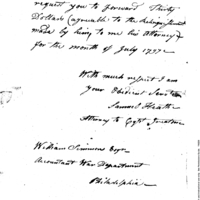 request you to forward Thirty
Dollars (agreeable to the
made by him to me his Attorney
for the month of July 1797.
With much respect I am
your Obedient Servt
Samuel Heath
Attorney to Capt
William Simmons Esqr
Accountant War Department
Philadelphia